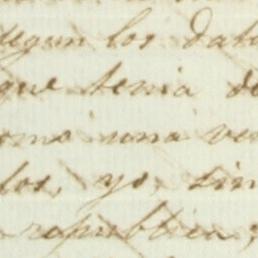 segun los dato
que tenia de
omo una ve
los, yo, sin
republica,